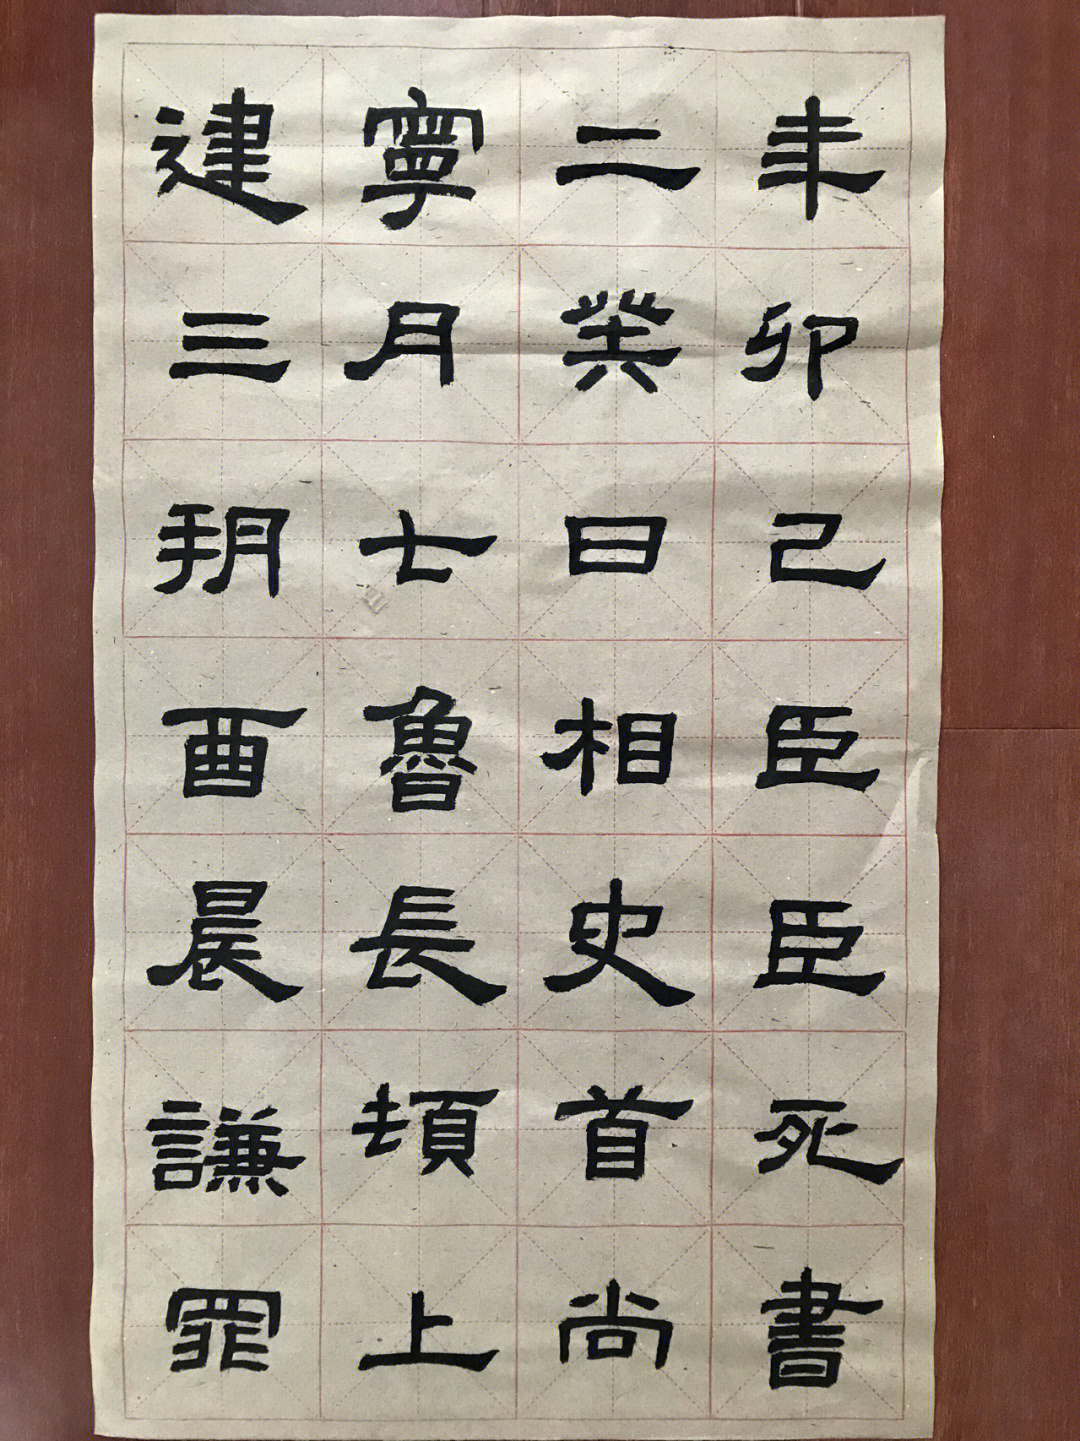 建寧二年
三月癸卯
朔七日己
酉魯相臣
晨長史臣
謙頓首死
罪上尚書